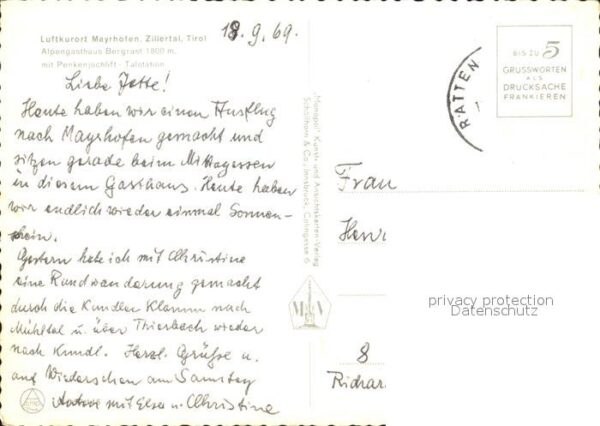 18.9.69.
Luftkurort Mayrhofen, Zillertal, Tirol
Alpengasthaus Bergrast 1800 m,
mit Penkenjochlift - Talstation
Liebe Jette!
Heute haben wir einen Ausflug
nach Mayrhofen gemacht und
sitzen gerade beim Mittagessen
in diesem Gasthaus. Heute haben
wir endlich wieder einmal Sonnen-
schein.
Gestern habe ich mit Christine
eine Rundwanderung gemacht
durch die Kundler Klamm nach
Mühltal u. über Thierbach wieder
nach Kundl. Herzl. Grüße u.
auf Wiedersehen am Samstag
mit Elsa u. Christine
"Monopol" Kunst- und Ansichtskarten-Verlag
Schöllhorn & Co., Innsbruck, Coningasse 6
RATTEN
BIS ZU 5
GRUSSWORTEN
ALS
DRUCKSACHE
FRANKIEREN
Frau
privacy protection
Datenschutz
8
Richar